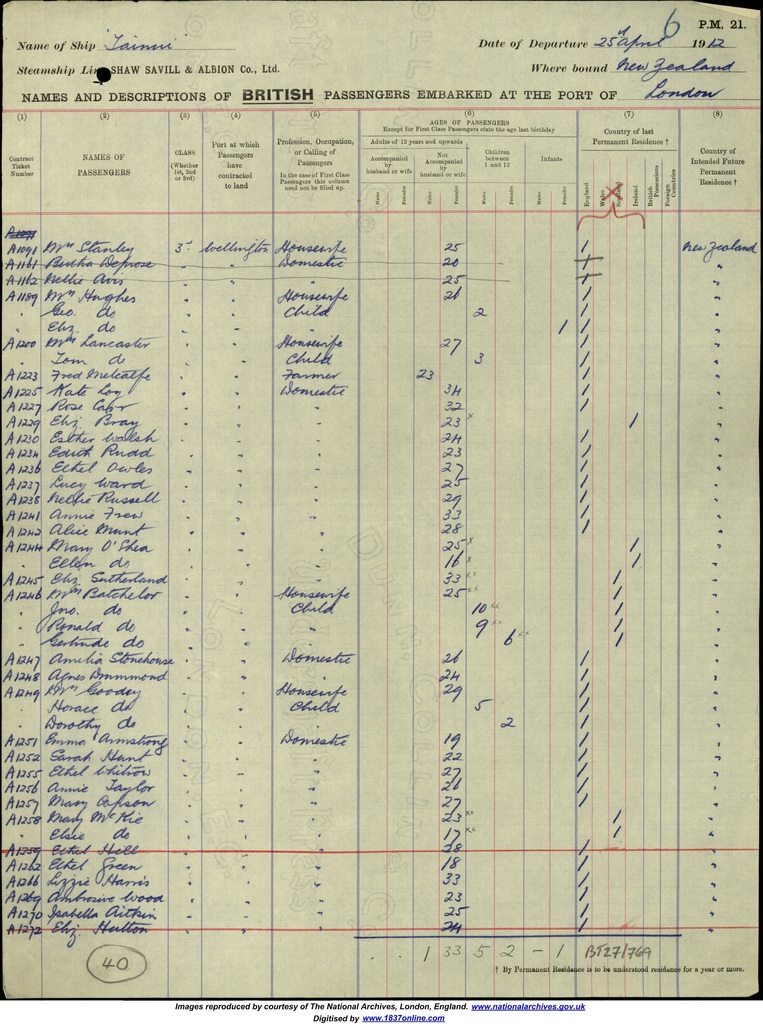 6
P.M. 21.
Name of Ship "Tainui" Date of Departure 25th April 1912
Steamship Line SHAW SAVILL & ALBION Co., Ltd. Where bound New Zealand
NAMES AND DESCRIPTIONS OF BRITISH PASSENGERS EMBARKED AT THE PORT OF London
(1) (2) (3) (4) (5) (6) (7) (8)
Contract Ticket Number
NAMES OF PASSENGERS
CLASS (Whether 1st, 2nd or 3rd)
Port at which Passengers have contracted to land
Profession, Occupation, or Calling of Passengers
In the case of First Class Passengers this column need not be filled up.
AGES OF PASSENGERS
Except for First Class Passengers state the age last birthday
Adults of 12 years and upwards
Accompanied by husband or wife
Not Accompanied by husband or wife
Children between 1 and 12
Infants
Males Females Males Females Males Females Males Females
Country of last Permanent Residence †
England Wales Scotland Ireland British Possessions Foreign Countries
Country of Intended Future Permanent Residence †
A1091
A1091 Mrs Stanley 3rd Wellington Housewife 25 / New Zealand
A1161 Bertha Deprose " Domestic 20 / "
A1162 Nellie Avis " " 25 / "
A1189 Mrs Hughes " " Housewife 26 / "
" Geo. do " " Child 2 / "
" Eliz. do " " " 1 / "
A1200 Mrs Lancaster " " Housewife 27 / "
" Tom do " " Child 3 / "
A1223 Fred Metcalfe " " Farmer 23 / "
A1225 Kate Loy " " Domestic 34 / "
A1227 Rose Carr " " " 32 / "
A1229 Eliz. Bray " " " 23 x / "
A1230 Esther Walsh " " " 24 / "
A1234 Edith Rudd " " " 23 / "
A1236 Ethel Owles " " " 27 / "
A1237 Lucy Ward " " " 25 / "
A1238 Nellie Russell " " " 29 / "
A1241 Annie Frew " " " 33 / "
A1242 Alice Munt " " " 28 / "
A1244 Mary O'Shea " " " 25 x / "
" Ellen do " " " 16 x / "
A1245 Eliz. Sutherland " " " 33 xx / "
A1246 Mrs Batchelor " " Housewife 25 xx / "
" Jno. do " " Child 10 xx / "
" Ronald do " " " 9 xx / "
" Gertrude do " " " 6 xx / "
A1247 Amelia Stonehouse " " Domestic 26 / "
A1248 Agnes Drummond " " " 24 / "
A1249 Mrs Goodey " " Housewife 29 / "
" Horace do " " Child 5 / "
" Dorothy do " " " 2 / "
A1251 Emma Armstrong " " Domestic 19 / "
A1252 Sarah Hunt " " " 22 / "
A1255 Ethel Whitrow " " " 27 / "
A1256 Annie Taylor " " " 26 / "
A1257 Mary Copson " " " 27 / "
A1258 Mary McKie " " " 23 xx / "
" Elsie do " " " 17 xx / "
A1259 Ethel Hill " " " 28 / "
A1262 Ethel Green " " " 18 / "
A1266 Lizzie Harris " " " 33 / "
A1269 Ambrosine Wood " " " 23 / "
A1270 Isabella Aitkin " " " 25 / "
A1272 Eliz. Hutton " " " 24 / "
40
. . 1 33 5 2 - 1 BT27/769
† By Permanent Residence is to be understood residence for a year or more.
Images reproduced by courtesy of The National Archives, London, England. www.nationalarchives.gov.uk
Digitised by www.1837online.com